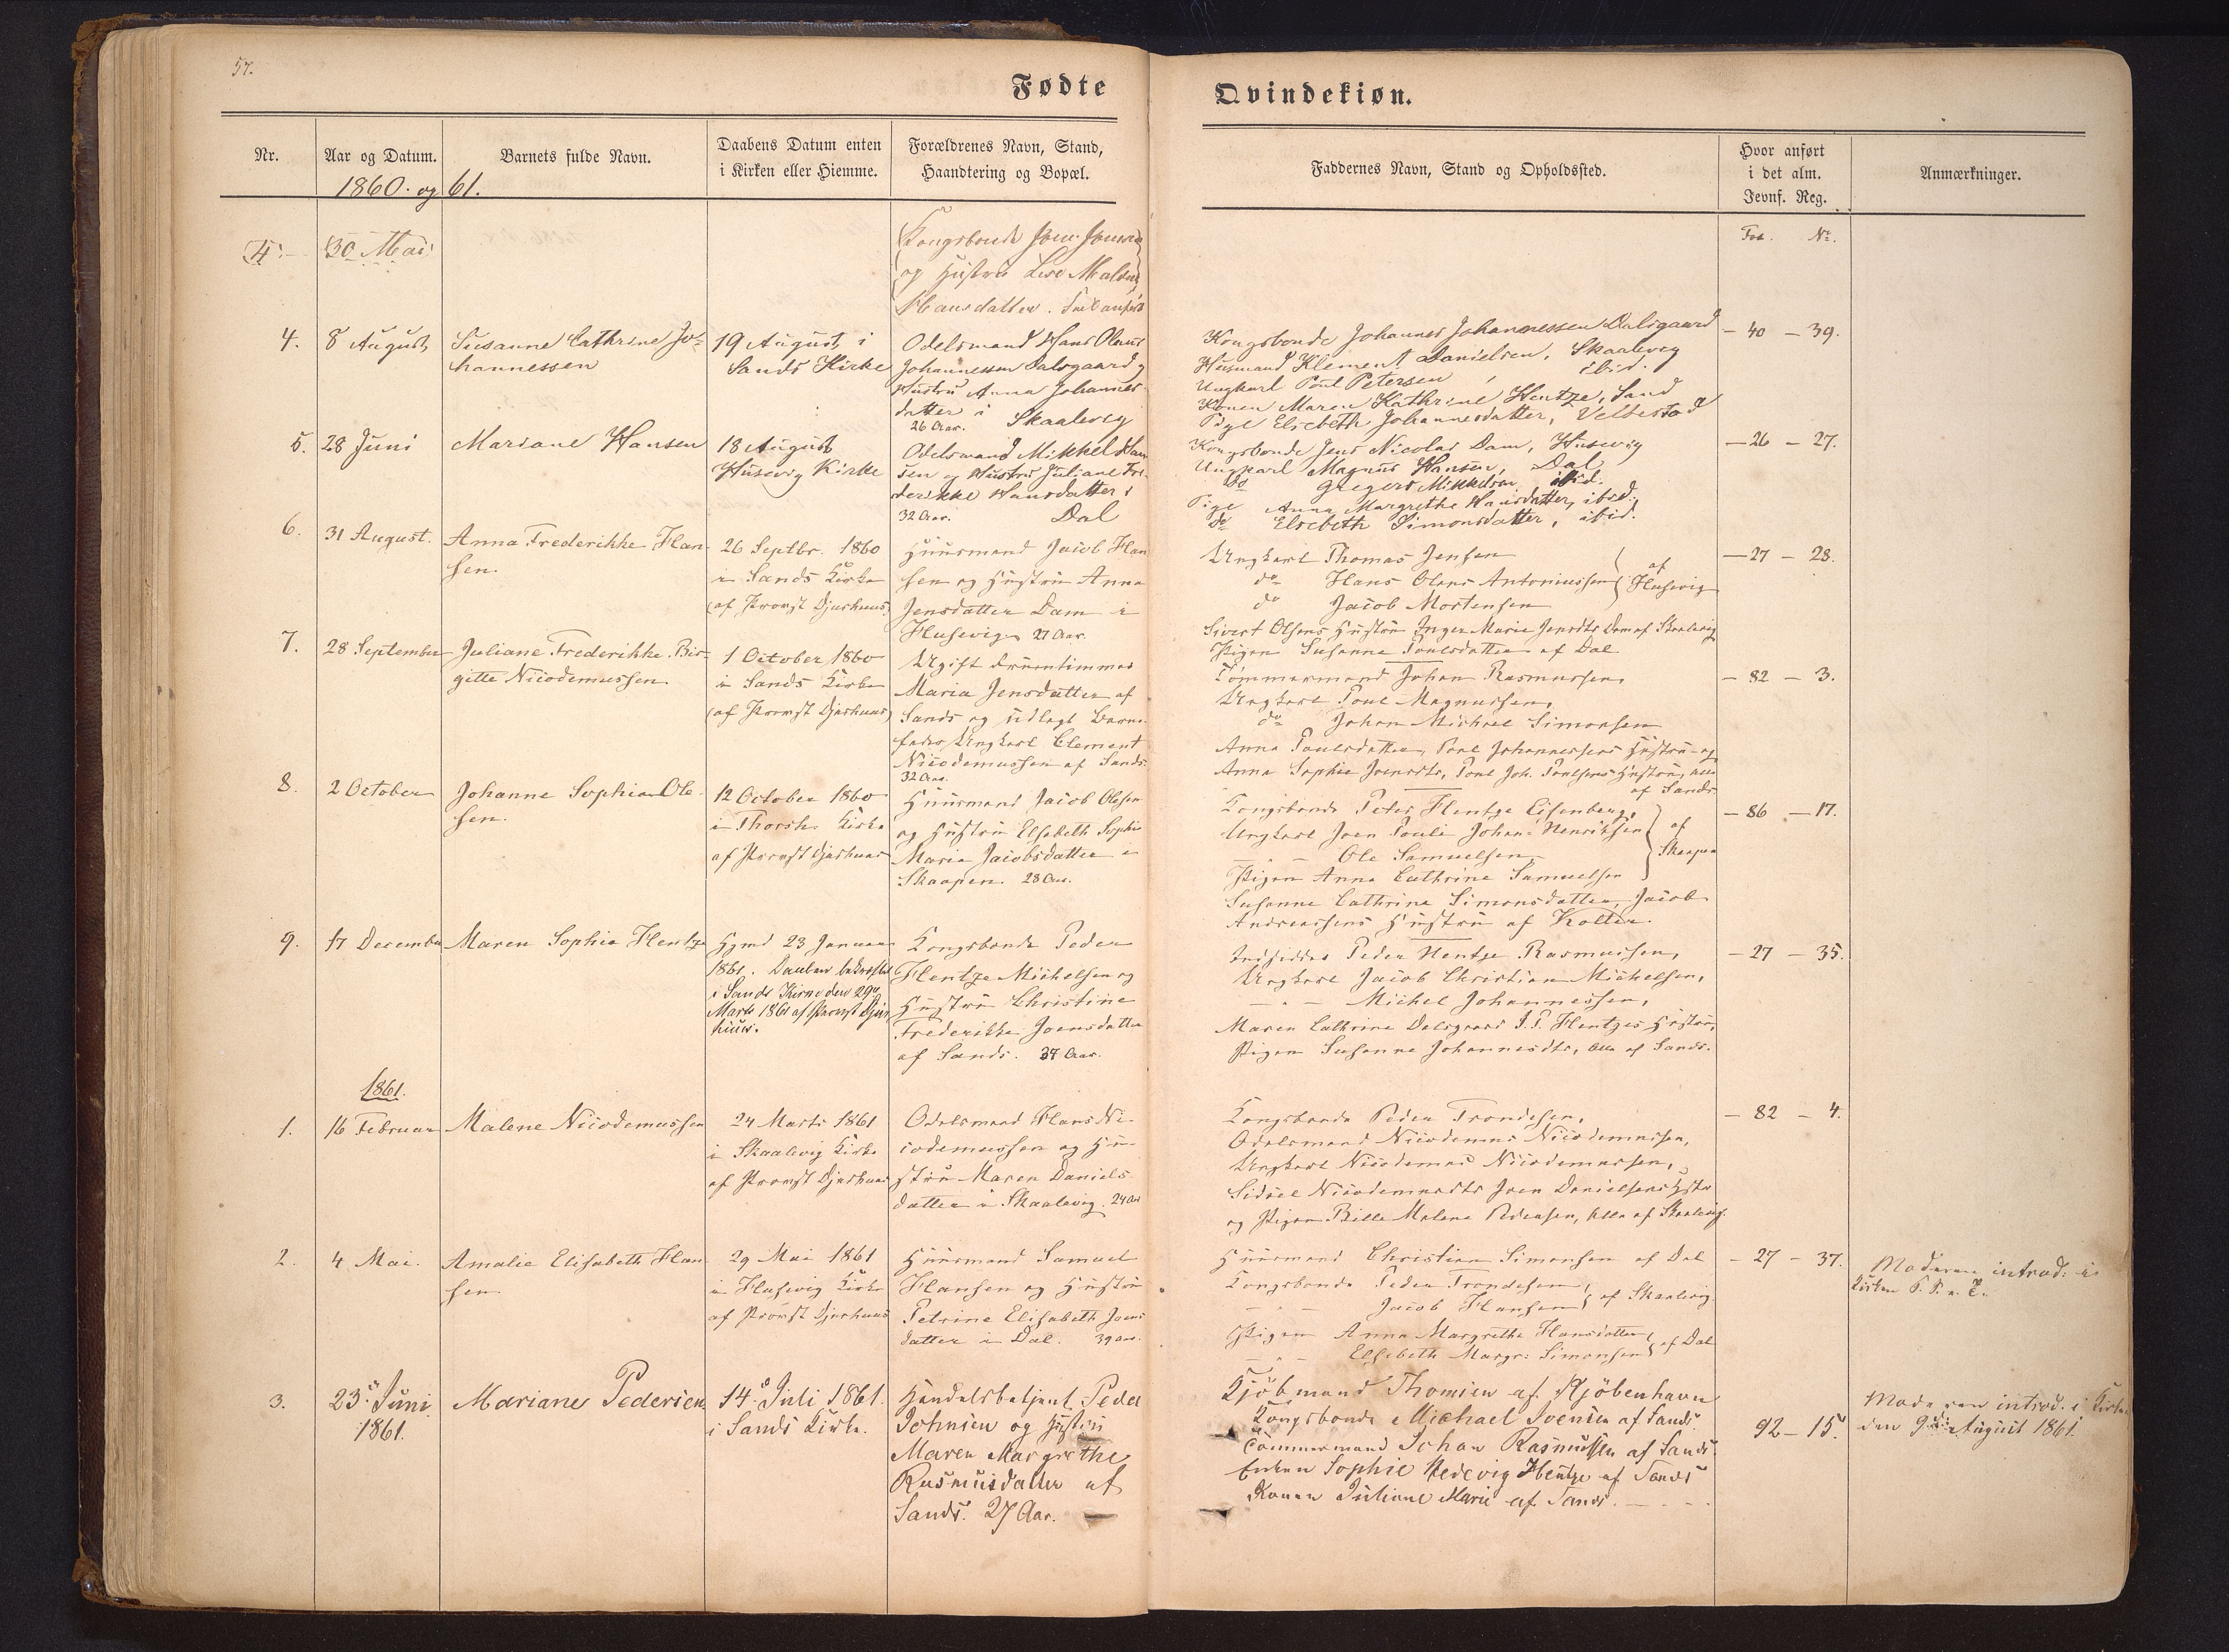 57.
Fødte
Qvindekiøn.
Nr.
Aar og Datum.
1860. og 61.
Barnets fulde Navn.
Daabens Datum enten
i Kirken eller Hiemme.
Forældrenes Navn, Stand,
Haandtering og Bopæl.
Faddernes Navn, Stand og Opholdssted.
Hvor anført
i det alm.
Jevnf. Reg.
Anmærkninger.
Fol. No.
4.
30 Mai
Kongsbonde Joen
og Hustru
Hansdatter.
4.
8 August
Susanne Cathrine Jo-
hannessen
19 August i
Sands Kirke
Odelsmand Hans Olaus
Johannessen Dalsgaard
Hustru Anna Johannes-
datter i Skaalevig
26 Aar.
Kongsbonde Johannes Johannessen Dalsgaard
Huusmand Klement Danielsen, Skaalevig
Ungkarl Poul Petersen, ibid.
Konen Maren Kathrine Hentze, Sand
Pige Elsebeth Johannesdatter,
- 40 - 39.
5.
28 Juni
Mariane Hansen
18 August
Husevig Kirke
Odelsmand Mikkel Han
sen og Hustru Juliane Fre-
derikke Hansdatter i
32 Aar. Dal
Kongsbonde Jens Nicolai Dam, Husevig
Ungkarl Magnus Hansen, Dal
do Gregers Mikkelsen ibid.
Pige Anna Margrethe Hansdatter, ibid.
do Elsebeth Simonsdatter, ibid.
- 26 - 27.
6.
31 August.
Anna Frederikke Han-
sen.
26 Septbr. 1860
i Sands Kirke
(af Provst Djurhuus)
Huusmand Jacob Han
sen og Hustru Anna
Jensdatter Dam i
Husevig 27 Aar.
Ungkarl Thomas Jensen
do Hans Olaus Antoniussen
do Jacob Mortensen
af
Husevig
Sivert Olsens Hustru Inger Marie Jensdtr Dam af Skaalevig
Pigen Susanne Poulsdatter af Dal
- 27 - 28.
7.
28 September
Juliane Frederikke Bir-
gitte Nicodemussen.
1 October 1860
i Sands Kirke
(af Provst Djurhuus)
Ugift Fruentimmer
Maria Jensdatter af
Sands og udlagt Barne-
fader Ungkarl Clement
Nicodemussen af Sands.
32 Aar.
Tømmermand Johan Rasmussen,
Ungkarl Poul Magnussen,
do Johan Michael Simonsen
Anna Poulsdatter, Poul Johannessens Hustru og
Anna Sophie Joensdtr, Poul Joh. Poulsens Hustru, alle
af Sands.
- 82 - 3.
8.
2 October
Johanne Sophia Ole-
sen.
12 October 1860
i Thorsh. Kirke
af Provst Djurhuus
Huusmand Jacob Olesen
og Hustru Elsebeth Sophie
Maria Jacobsdatter i
Skaapen. 28 Aar.
Kongsbonde Peter Hentze Eisenberg,
Ungkarl Joen Pouli Johan Henriksen
- " - Ole Samuelsen
Pigen Anna Cathrine Samuelsen
af
Skaapen
Susanne Cathrine Simonsdatter, Jacob
Andreassens Hustru af Kolter.
- 86 - 17.
9.
17 December
Maren Sophie Hentze
Hjmd 23 Januar
1861. Daaben bekræftet
i Sands Kirke den 29
Marts 1861 af Provst Djur
huus.
Kongsbonde Peder
Hentze Michelsen og
Hustru Christine
Frederikke Joensdatter
af Sands. 37 Aar.
Indsidder Peder Hentze Rasmussen,
Ungkarl Jacob Christian Michelsen,
- " - Michel Johannessen,
Maren Cathrine Dalsgaard J. P. Hentzes Hustru,
Pigen Susanne Johannesdtr, alle af Sands.
- 27 - 35.
1861.
1.
16 Februar
Malene Nicodemussen
24 Marts 1861
i Skaalevig Kirke
af Provst Djurhuus
Odelsmand Hans Ni-
codemussen og Hu-
stru Maren Daniels-
datter i Skaalevig. 24 Aar
Kongsbonde Peder Trondesen,
Odelsmand Nicodemus Nicodemussen,
Ungkarl Nicodemus Nicodemussen,
Sidsel Nicodemusdtr Joen Danielsens Hstr
og Pigen Bille Malene Pedersen, alle af Skaalevig.
- 82 - 4.
2.
4 Mai.
Amalie Elisabeth Han-
sen
29 Mai 1861
i Husevig Kirke
af Provst Djurhuus
Huusmand Samuel
Hansen og Hustru
Petrine Elisabeth Joens
datter i Dal. 39 Aar.
Huusmand Christian Simonsen af Dal
Kongsbonde Peder Trondesen
- " - Jacob Hansen
af Skaalevig.
Pigen Anna Margrethe Hansdatter
- " - Elsebeth Margr: Simonsen
af Dal
- 27 - 37.
Moderen introd: i
Kirken
3.
23 Juni
1861.
Mariane Pedersen
14 Juli 1861.
i Sands Kirke.
Handelsbetjent Peder
Johnsen og Hustru
Maren Margrethe
Rasmusdatter af
Sands. 27 Aar.
Kjöbmand Thomsen af Kjöbenhavn
Kongsbonde Michael Joensen af Sands
Tømmermand Johan Rasmussen af Sands.
Enken Sophie Hedevig Hentze af Sands
Konen Juliane Marie af Sand.
92 - 15.
Moderen introd. i Kirken
den 9 August 1861.